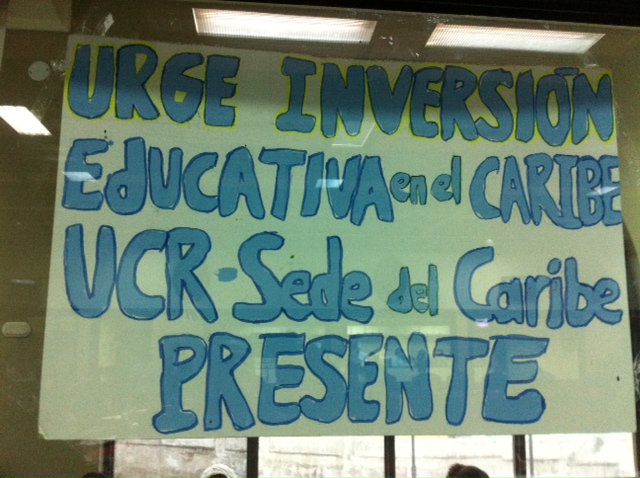 URGE INVERSIÓN
EdUCATIVA en el CARIBE
UCR - Sede del Caribe
PRESENTE